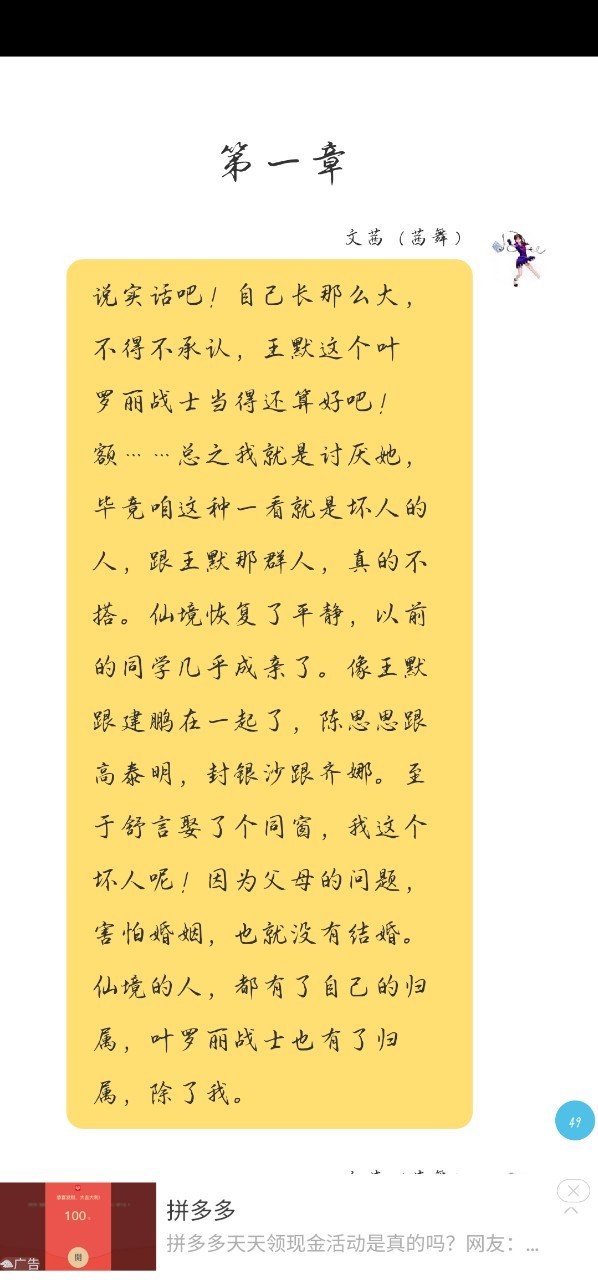 第一章
文茜（茜舞）
说实话吧！自己长那么大，
不得不承认，王默这个叶
罗丽战士当得还算好吧！
额……总之我就是讨厌她，
毕竟咱这种一看就是坏人的
人，跟王默那群人，真的不
搭。仙境恢复了平静，以前
的同学几乎成亲了。像王默
跟建鹏在一起了，陈思思跟
高泰明，封银沙跟齐娜。至
于舒言娶了个同窗，我这个
坏人呢！因为父母的问题，
害怕婚姻，也就没有结婚。
仙境的人，都有了自己的归
属，叶罗丽战士也有了归
属，除了我。
49
100
開
广告
拼多多
拼多多天天领现金活动是真的吗？网友：...